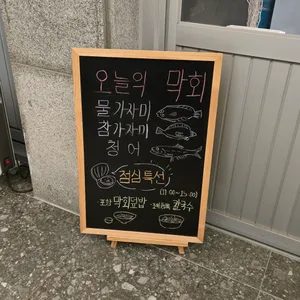 오늘의 막회
물가자미
참가자미
청어
점심특선
(11:00~15:00)
포항 막회덮밥
칼국수